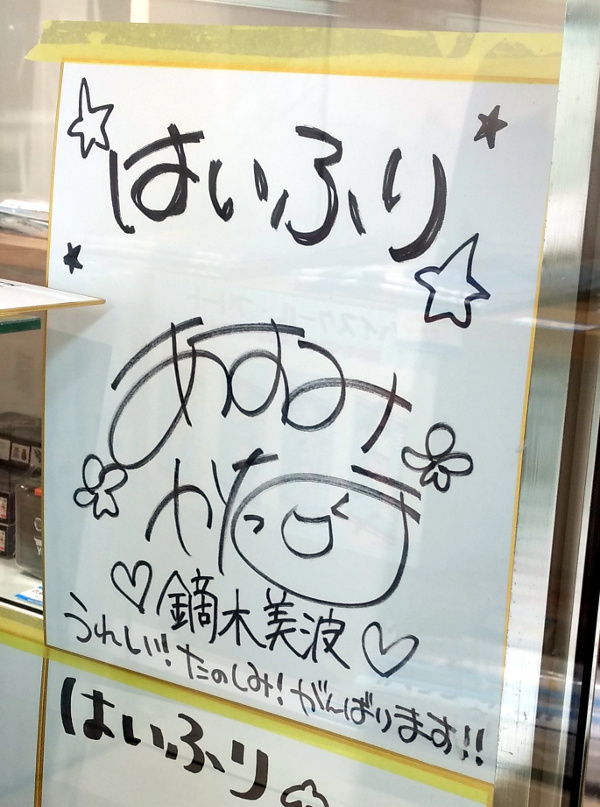 はいふり
あずみ
がき
鏑木美波
うれしい!たのしみ!がんばります!!
はいふり